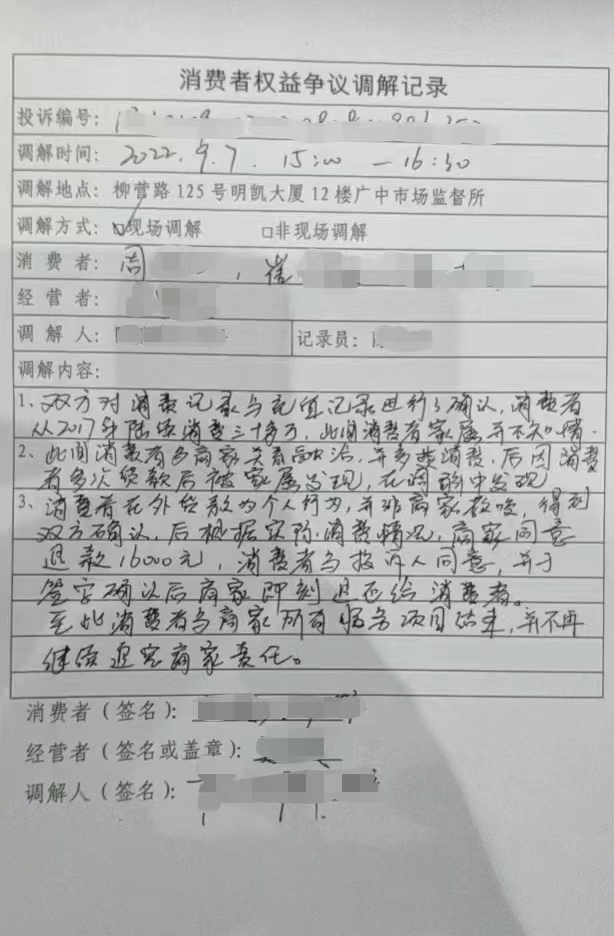 消费者权益争议调解记录
投诉编号：
调解时间：2022.9.7. 15:00 —16:30
调解地点：柳营路125号明凯大厦12楼广中市场监督所
调解方式：☑现场调解 □非现场调解
消费者：周 ，崔
经营者：
调解人： 记录员：
调解内容：
1、双方对消费记录与充值记录进行了确认，消费者
从2017年陆续消费三十多万，此间消费者家属并不知情.
2、此间消费者与商家关系融洽，并多费消费，后因消费
者多次贷款后被家属发现，在闲聊中发现
3、消费者在外贷款为个人行为，并非商家教唆，得到
双方确认，后根据实际消费情况，商家同意
退款16000元，消费者与投诉人同意，并于
签字确认后商家即刻退还给消费者。
至此消费者与商家所有服务项目结束，并不再
继续追究商家责任。
消费者（签名）：
经营者（签名或盖章）：
调解人（签名）：